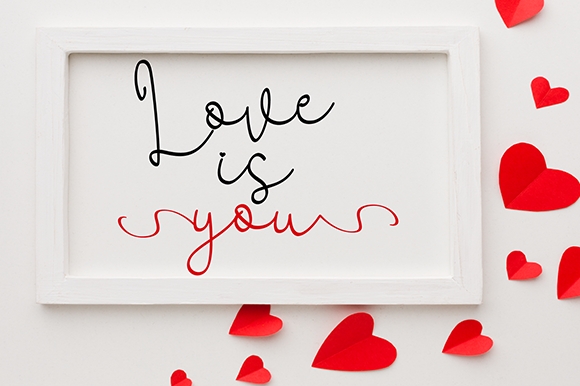 Love
is
you